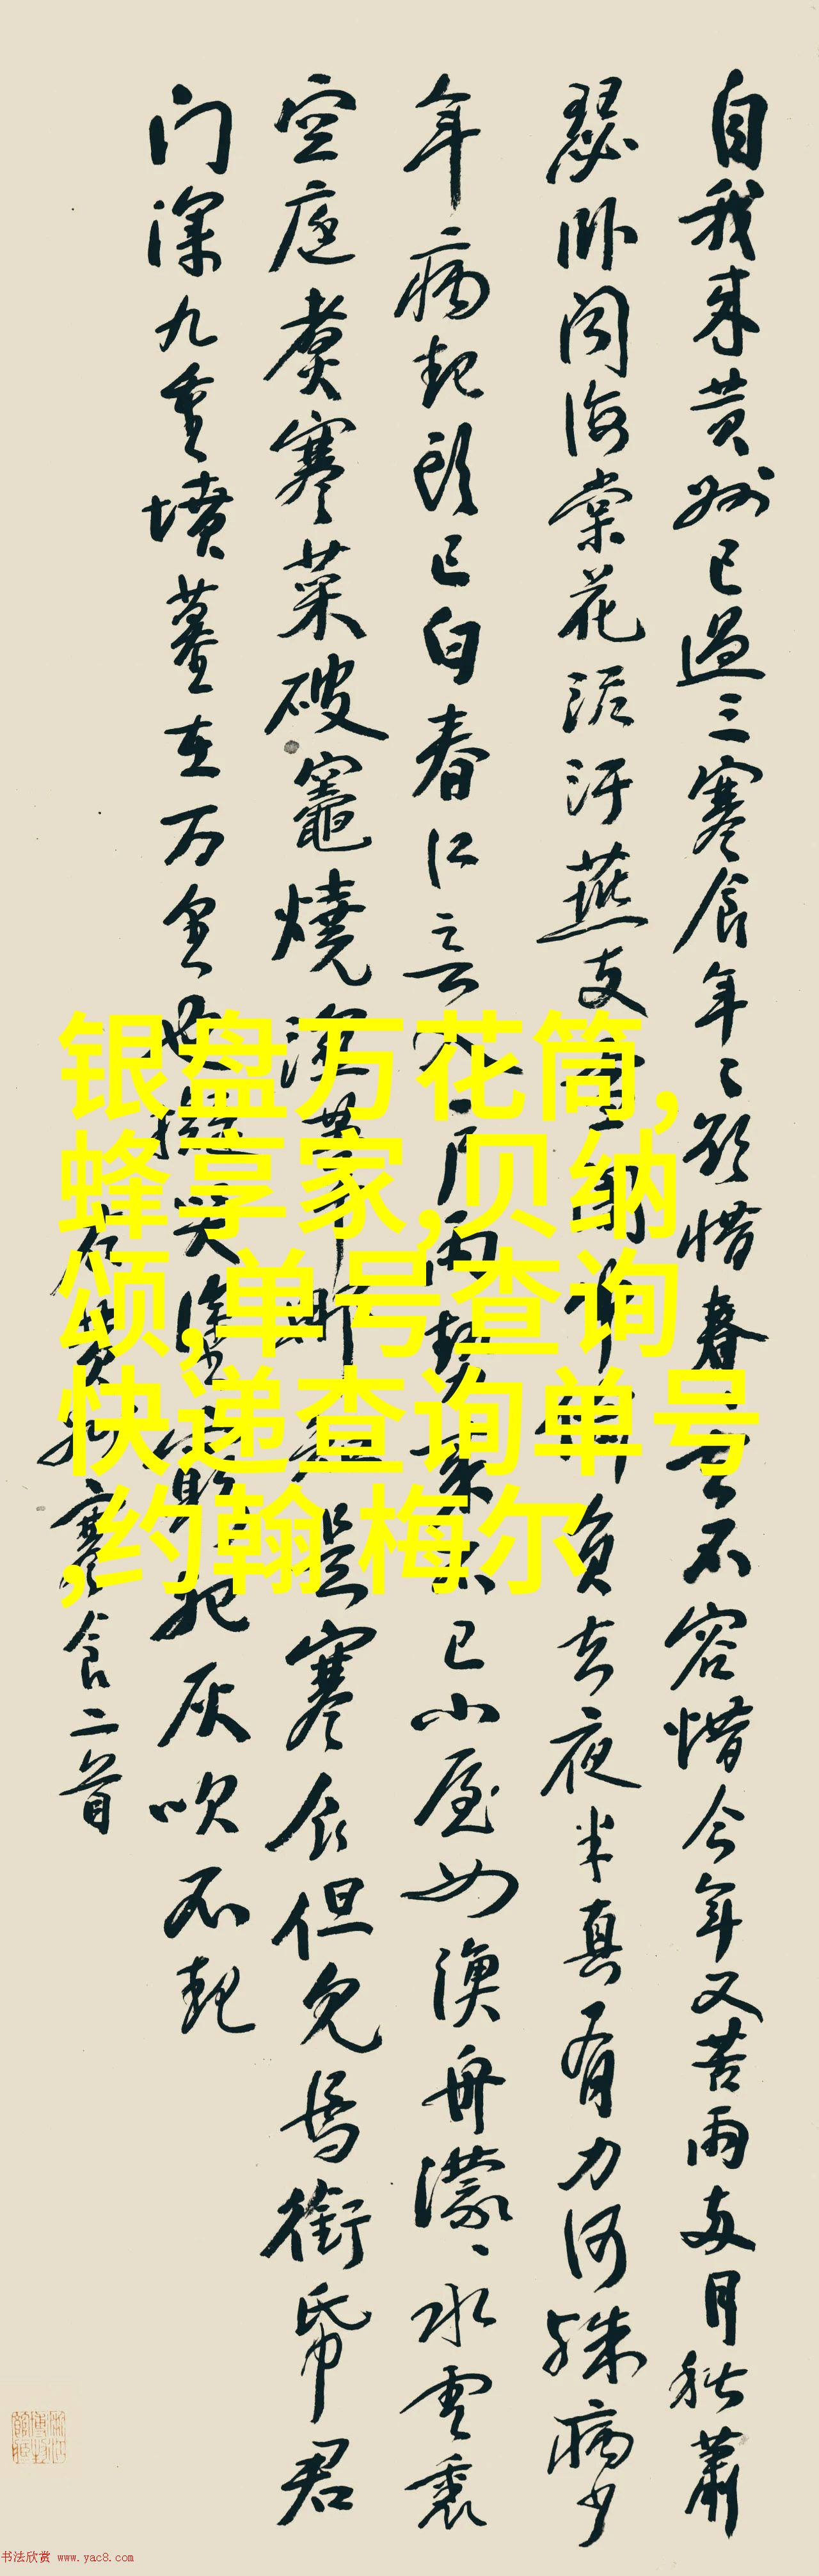 自我来黄州已過三寒食年〻欲惜春去不容惜今年又苦雨两月秋蕭
瑟卧闻海棠花泥汙燕支雪中偷負去夜半真有力何殊病少
年病起頭已白春江入户雨势来不已小屋如漁舟濛〻水雲裏
空庖煮寒菜破竈燒濕葦那知是寒食但見烏銜帋君
门深九重墳墓在万里也擬哭塗窮死灰吹不起
右黄州寒食二首
银盘万花筒,
蜂享家,贝纳
颂,单号查询
快递查询单号
,约翰·梅尔
书法欣赏 www.yac8.com